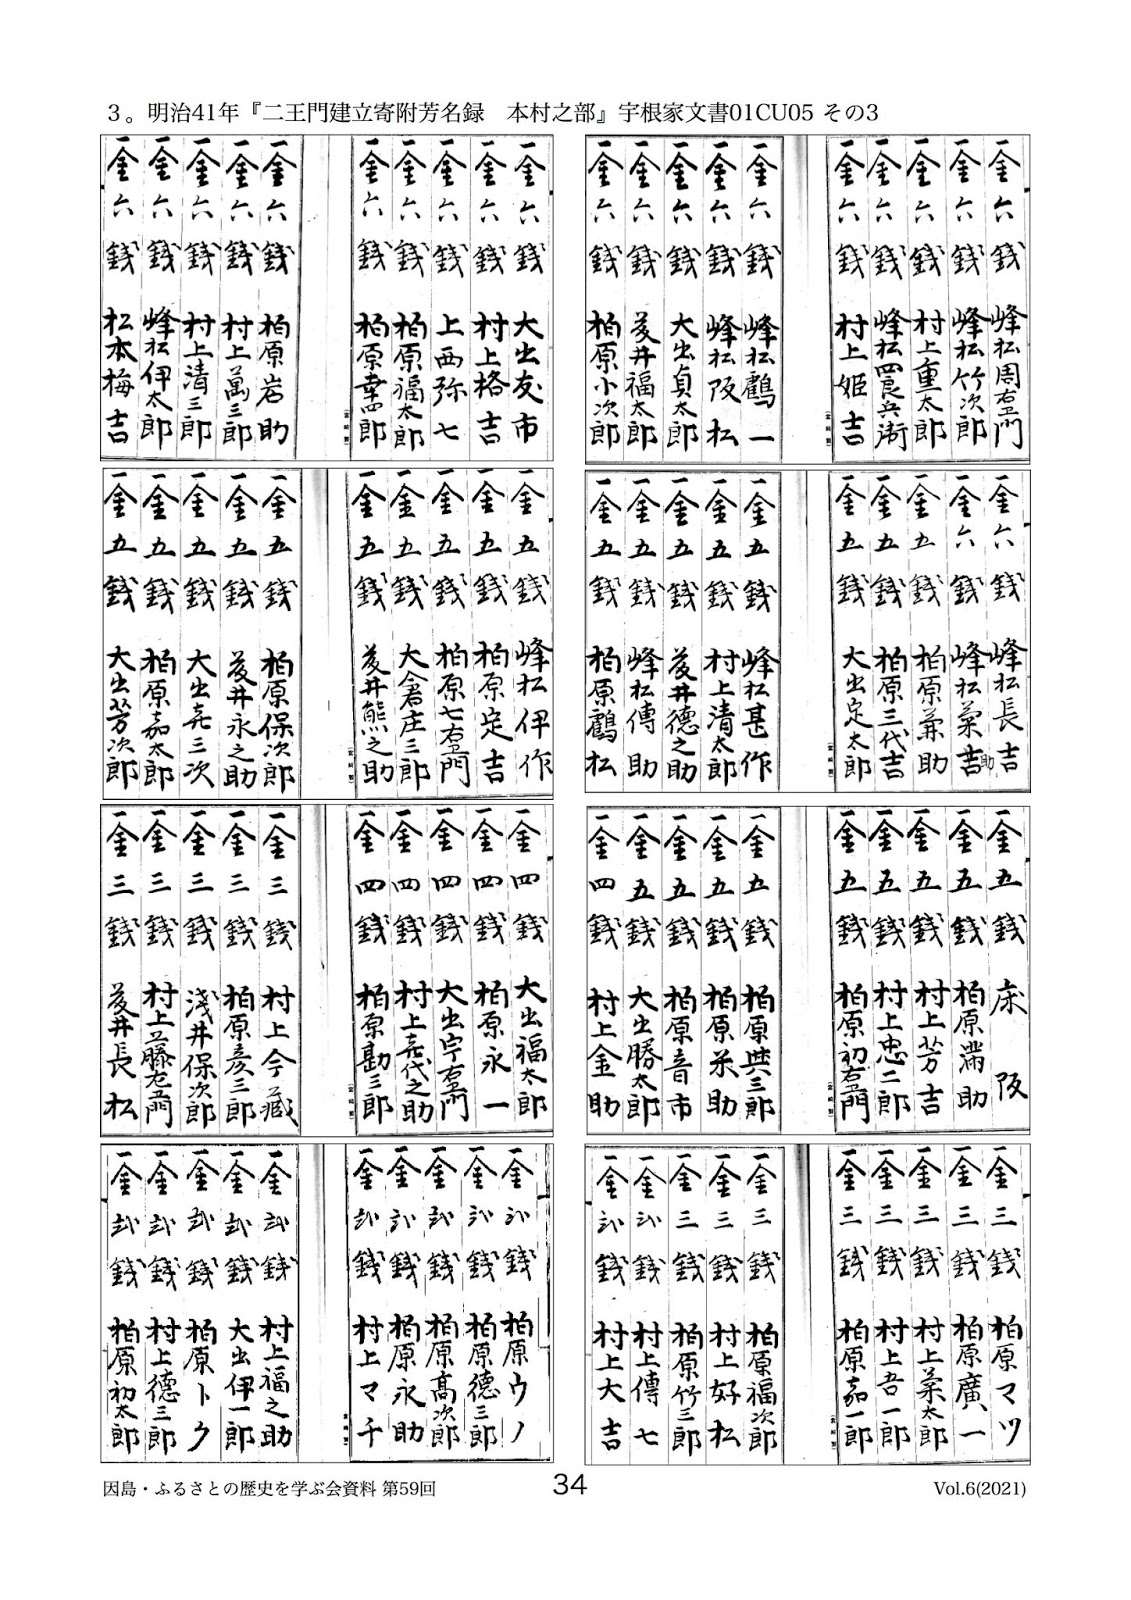 ３。明治41年『二王門建立寄附芳名録　本村之部』宇根家文書01CU05 その3
一金六銭 峰松周右衛門
一金六銭 峰松竹次郎
一金六銭 村上重太郎
一金六銭 峰松四良兵衛
一金六銭 村上姫吉
一金六銭 峰松鶴一
一金六銭 峰松阪松
一金六銭 大出貞太郎
一金六銭 藤井福太郎
一金六銭 柏原小次郎
一金六銭 大出友市
一金六銭 村上格吉
一金六銭 上西弥七
一金六銭 柏原福太郎
一金六銭 柏原幸四郎
一金六銭 柏原岩助
一金六銭 村上萬三郎
一金六銭 村上清三郎
一金六銭 峰松伊太郎
一金六銭 松本梅吉
一金六銭 峰松長吉
一金六銭 峰松菊吉助
一金五銭 柏原兼助
一金五銭 柏原三代吉
一金五銭 大出定太郎
一金五銭 峰松甚作
一金五銭 村上清太郎
一金五銭 藤井徳之助
一金五銭 峰松傳助
一金五銭 柏原鶴松
一金五銭 峰松伊作
一金五銭 柏原定吉
一金五銭 柏原七右衛門
一金五銭 大倉庄三郎
一金五銭 藤井熊之助
一金五銭 柏原保次郎
一金五銭 藤井永之助
一金五銭 大出㐂三次
一金五銭 柏原嘉太郎
一金五銭 大出芳次郎
一金五銭 床阪
一金五銭 柏原満助
一金五銭 村上芳吉
一金五銭 村上忠二郎
一金五銭 柏原初右衛門
一金五銭 柏原與三郎
一金五銭 柏原米助
一金五銭 柏原音市
一金五銭 大出勝太郎
一金四銭 村上金助
一金四銭 大出福太郎
一金四銭 柏原永一
一金四銭 大出宇右衛門
一金四銭 村上㐂代之助
一金四銭 柏原勘三郎
一金三銭 村上今藏
一金三銭 柏原彦三郎
一金三銭 浅井保次郎
一金三銭 村上藤左衛門
一金三銭 藤井長松
一金三銭 柏原マツ
一金三銭 柏原廣一
一金三銭 村上菊太郎
一金三銭 村上吾一郎
一金三銭 柏原嘉一郎
一金三銭 柏原福次郎
一金三銭 村上好松
一金三銭 柏原竹三郎
一金弐銭 村上傳七
一金弐銭 村上大吉
一金弐銭 柏原ウノ
一金弐銭 柏原徳三郎
一金弐銭 柏原髙次郎
一金弐銭 柏原永助
一金弐銭 村上マチ
一金弐銭 村上福之助
一金弐銭 大出伊一郎
一金弐銭 柏原トク
一金弐銭 村上德三郎
一金弐銭 柏原初太郎
因島・ふるさとの歴史を学ぶ会資料 第59回
34
Vol.6(2021)